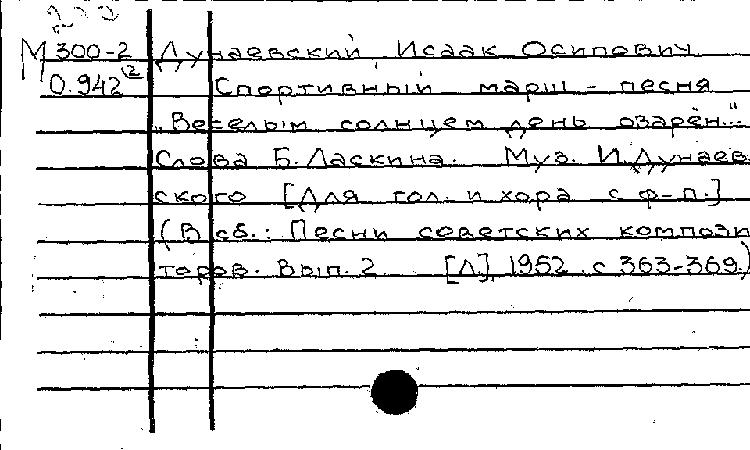 М 300-2 Дунаевский Исаак Осипович
0.942(2 Спортивный марш - песня
„Веселым солнцем день озарён..."
Слова Б. Ласкина. Муз. И. Дунаев
ского [Для гол. и хора с ф-п.]
(В сб.: Песни советских компози
торов. Вып. 2 [Л], 1952 с 363-369.)